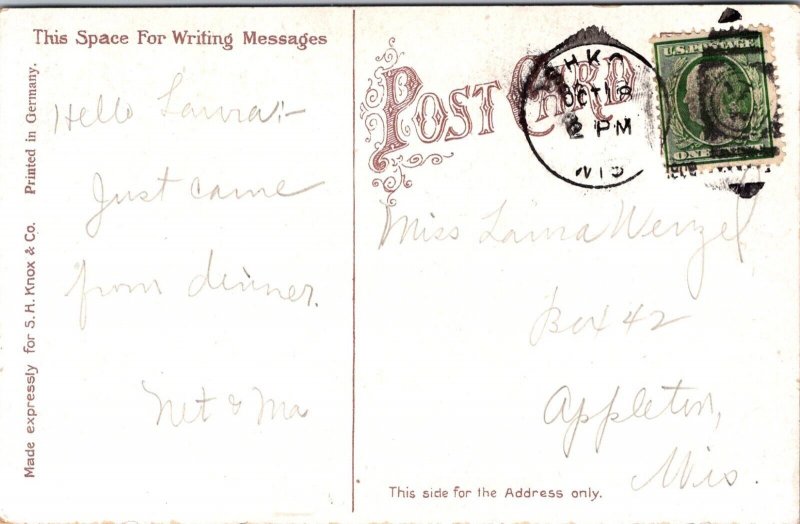 This Space For Writing Messages
Hello Laura:-
Just came
from dinner.
Net & Ma
Made expressly for S.H. Knox & Co. Printed in Germany.
POST CARD
HKO
OCT 18
2 PM
WIS
U.S. POSTAGE
ONE
Miss Laura Wenzel
Box 42
Appleton,
Wis.
This side for the Address only.